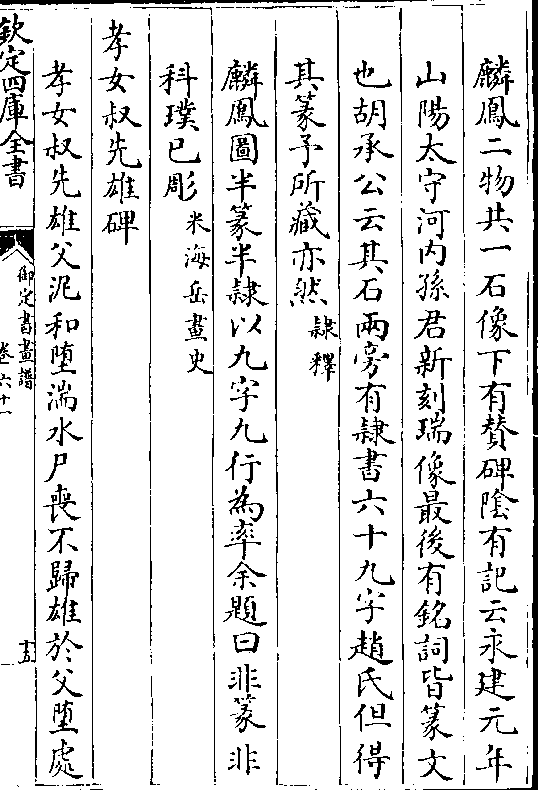 麟鳳二物共一石像下有賛碑隂有記云永建元年
山陽太守河内孫君新刻瑞像最後有銘詞皆篆文
也胡承公云其石兩旁有隷書六十九字趙氏但得
其篆予所藏亦然隷釋
麟鳳圖半篆半隷以九字九行為率余題曰非篆非
科璞已彫米海岳畫史
孝女叔先雄碑
孝女叔先雄父泥和墮湍水尸喪不歸雄於父墮處
欽定四庫全書
御定書畫譜
卷六十一
十五